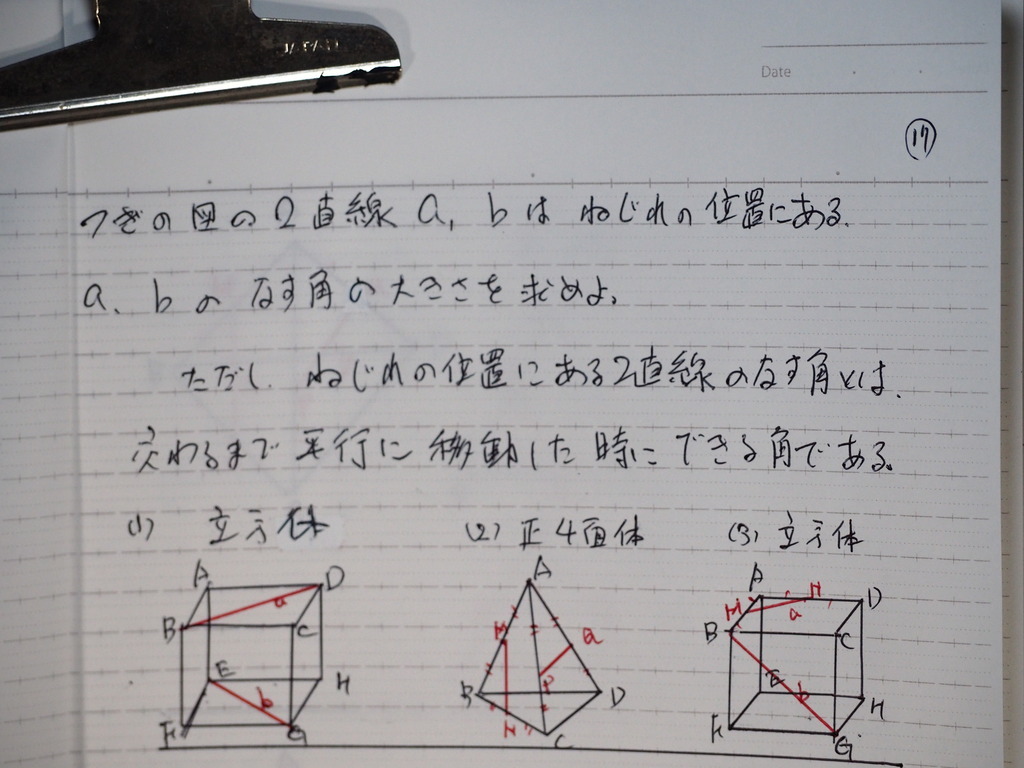 JAPAN
Date
17
つぎの図の2直線a, bは ねじれの位置にある.
a、bの なす角の大きさを求めよ.
ただし. ねじれの位置にある2直線のなす角とは.
交わるまで平行に移動した時にできる角である.
(1) 立方体 (2) 正4面体 (3) 立方体
A D a B C E H b F G
A M a B P D C
A D a B C E b H F G